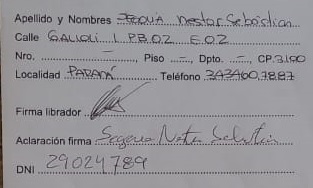 Apellido y Nombres Segovia Nestor Sebastian
Calle GALLOLI L PB02 E02
Nro. –, Piso –, Dpto. –, CP. 3100
Localidad PARANÁ Teléfono 343460.7887
Firma librador
Aclaración firma Segovia Nestor Sebastian
DNI 29024789